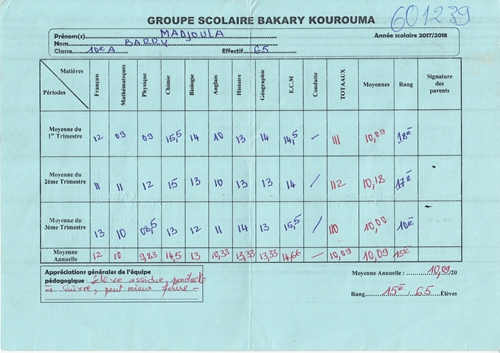 GROUPE SCOLAIRE BAKARY KOUROUMA
601239
Prénom(s) MADJOULA
Année scolaire 2017/2018
Nom BARRY
Classe 10e A Effectif 65
Matières Périodes Français Mathématiques Physique Chimie Biologie Anglais Histoire Géographie E.C.M Conduite TOTAUX Moyennes Rang Signature des parents
Moyenne du 1er Trimestre 12 09 09 15,5 14 10 13 14 14,5 / 111 10,09 18e
Moyenne du 2ème Trimestre 11 11 12 15 13 10 13 13 14 / 112 10,18 17e
Moyenne du 3ème Trimestre 13 10 08,5 13 12 11 14 13 15,5 / 110 10,00 10e
Moyenne Annuelle 12 10 9,83 14,5 13 10,33 13,33 13,33 14,66 - 10,09 10,09 15e
Appréciations générales de l'équipe
pédagogique: élève assidue,
à suivre, peut mieux faire -
Moyenne Annuelle : 10,09/20
Rang 15e / 65 Élèves